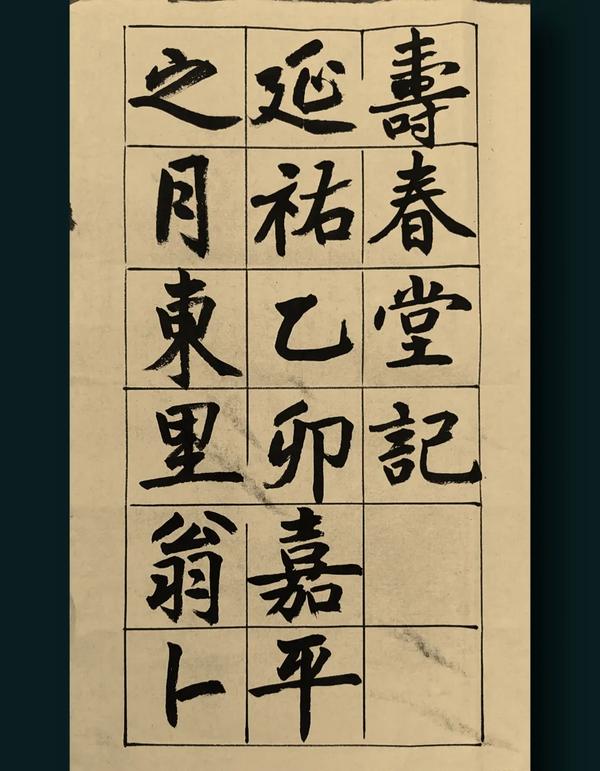 壽春堂記
延祐乙卯嘉平
之月東里翁卜